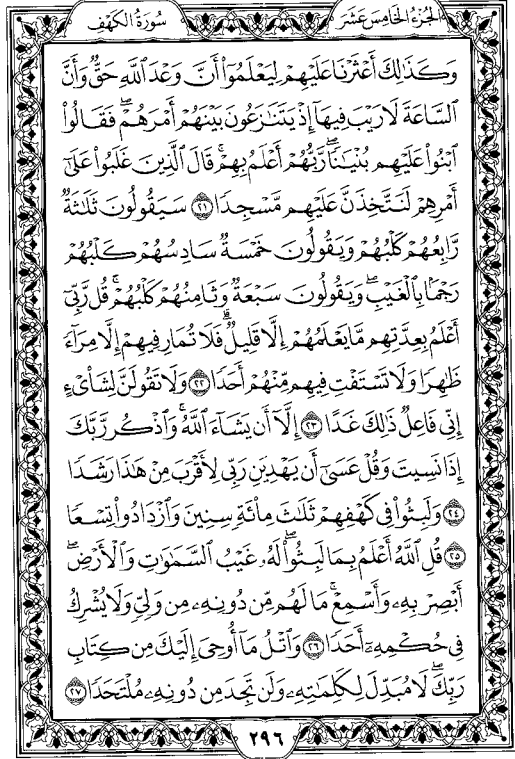 الجزء الخامس عشر
سورة الكهف
وَكَذَٰلِكَ أَعْثَرْنَا عَلَيْهِمْ لِيَعْلَمُوٓا۟ أَنَّ وَعْدَ ٱللَّهِ حَقٌّ وَأَنَّ
ٱلسَّاعَةَ لَا رَيْبَ فِيهَآ إِذْ يَتَنَـٰزَعُونَ بَيْنَهُمْ أَمْرَهُمْ ۖ فَقَالُوا۟
ٱبْنُوا۟ عَلَيْهِم بُنْيَـٰنًا ۖ رَّبُّهُمْ أَعْلَمُ بِهِمْ ۚ قَالَ ٱلَّذِينَ غَلَبُوا۟ عَلَىٰٓ
أَمْرِهِمْ لَنَتَّخِذَنَّ عَلَيْهِم مَّسْجِدًا ٢١ سَيَقُولُونَ ثَلَـٰثَةٌ
رَّابِعُهُمْ كَلْبُهُمْ وَيَقُولُونَ خَمْسَةٌ سَادِسُهُمْ كَلْبُهُمْ
رَجْمًۢا بِٱلْغَيْبِ ۖ وَيَقُولُونَ سَبْعَةٌ وَثَامِنُهُمْ كَلْبُهُمْ ۚ قُل رَّبِّىٓ
أَعْلَمُ بِعِدَّتِهِم مَّا يَعْلَمُهُمْ إِلَّا قَلِيلٌ ۗ فَلَا تُمَارِ فِيهِمْ إِلَّا مِرَآءً
ظَـٰهِرًا وَلَا تَسْتَفْتِ فِيهِم مِّنْهُمْ أَحَدًا ٢٢ وَلَا تَقُولَنَّ لِشَا۟ىْءٍ
إِنِّى فَاعِلٌ ذَٰلِكَ غَدًا ٢٣ إِلَّآ أَن يَشَآءَ ٱللَّهُ ۚ وَٱذْكُر رَّبَّكَ
إِذَا نَسِيتَ وَقُلْ عَسَىٰٓ أَن يَهْدِيَنِ رَبِّى لِأَقْرَبَ مِنْ هَـٰذَا رَشَدًا
٢٤ وَلَبِثُوا۟ فِى كَهْفِهِمْ ثَلَـٰثَ مِا۟ئَةٍ سِنِينَ وَٱزْدَادُوا۟ تِسْعًا
٢٥ قُلِ ٱللَّهُ أَعْلَمُ بِمَا لَبِثُوا۟ ۖ لَهُۥ غَيْبُ ٱلسَّمَـٰوَٰتِ وَٱلْأَرْضِ ۖ
أَبْصِرْ بِهِۦ وَأَسْمِعْ ۚ مَا لَهُم مِّن دُونِهِۦ مِن وَلِىٍّ وَلَا يُشْرِكُ
فِى حُكْمِهِۦٓ أَحَدًا ٢٦ وَٱتْلُ مَآ أُوحِىَ إِلَيْكَ مِن كِتَابِ
رَبِّكَ ۖ لَا مُبَدِّلَ لِكَلِمَـٰتِهِۦ وَلَن تَجِدَ مِن دُونِهِۦ مُلْتَحَدًا ٢٧
٢٩٦